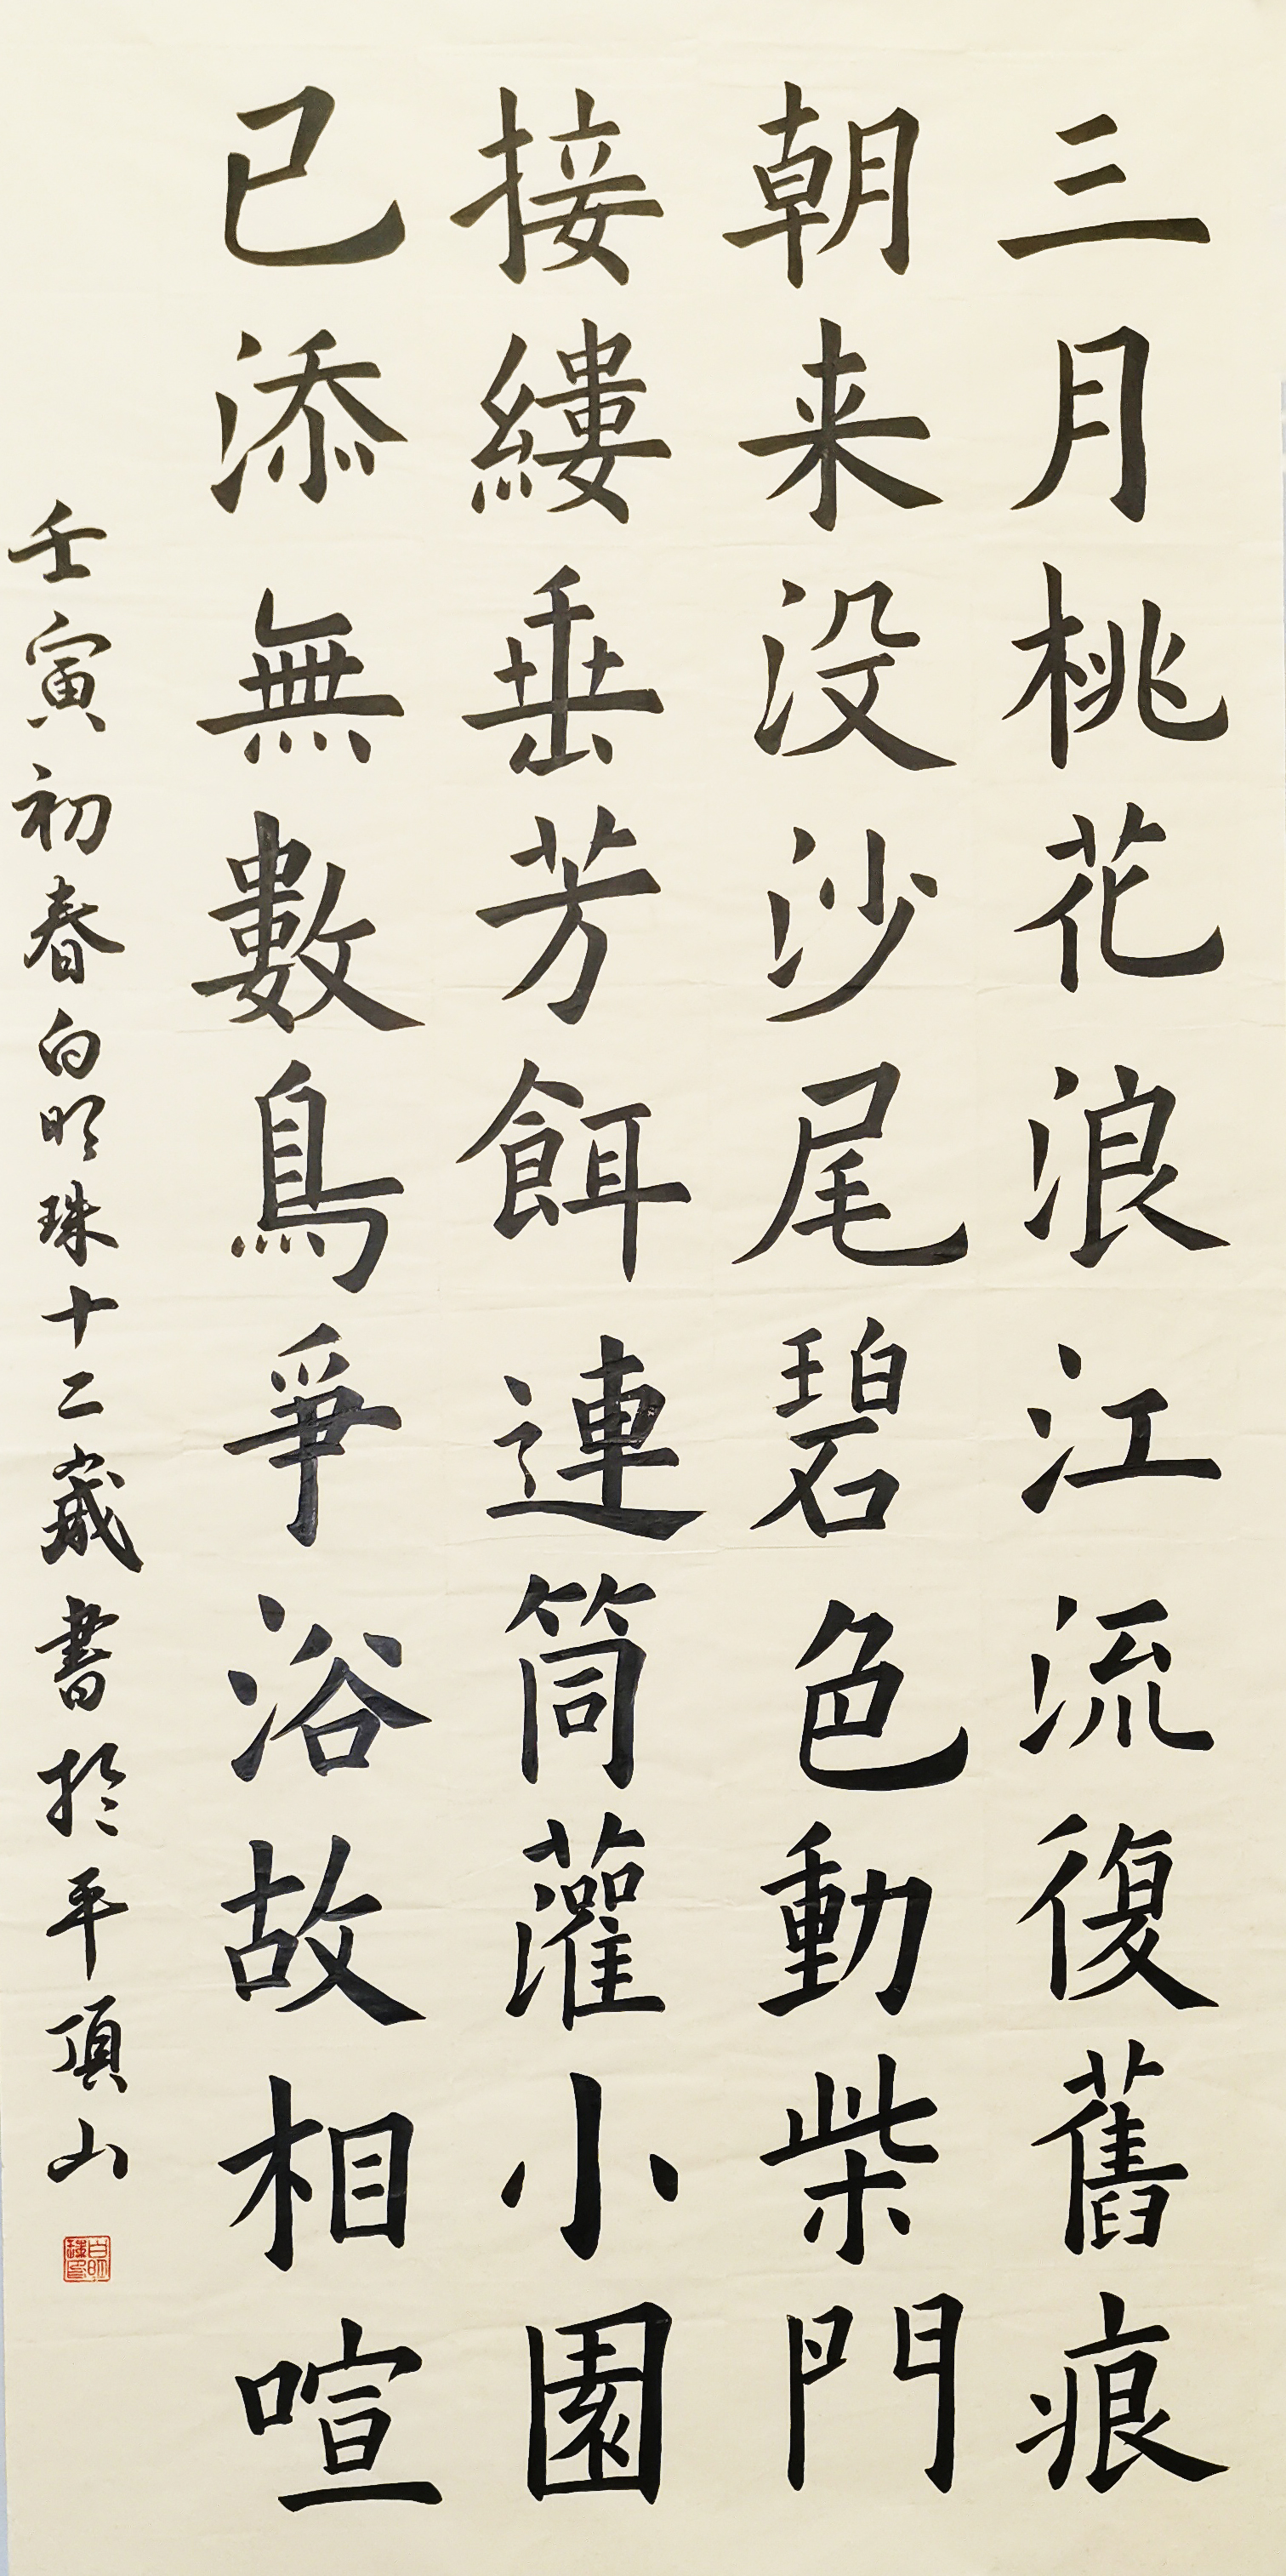 三月桃花浪江流復舊痕
朝来没沙尾碧色動柴門
接縷垂芳餌連筒灌小園
已添無數鳥爭浴故相喧
壬寅初春白明珠十二歲書於平頂山